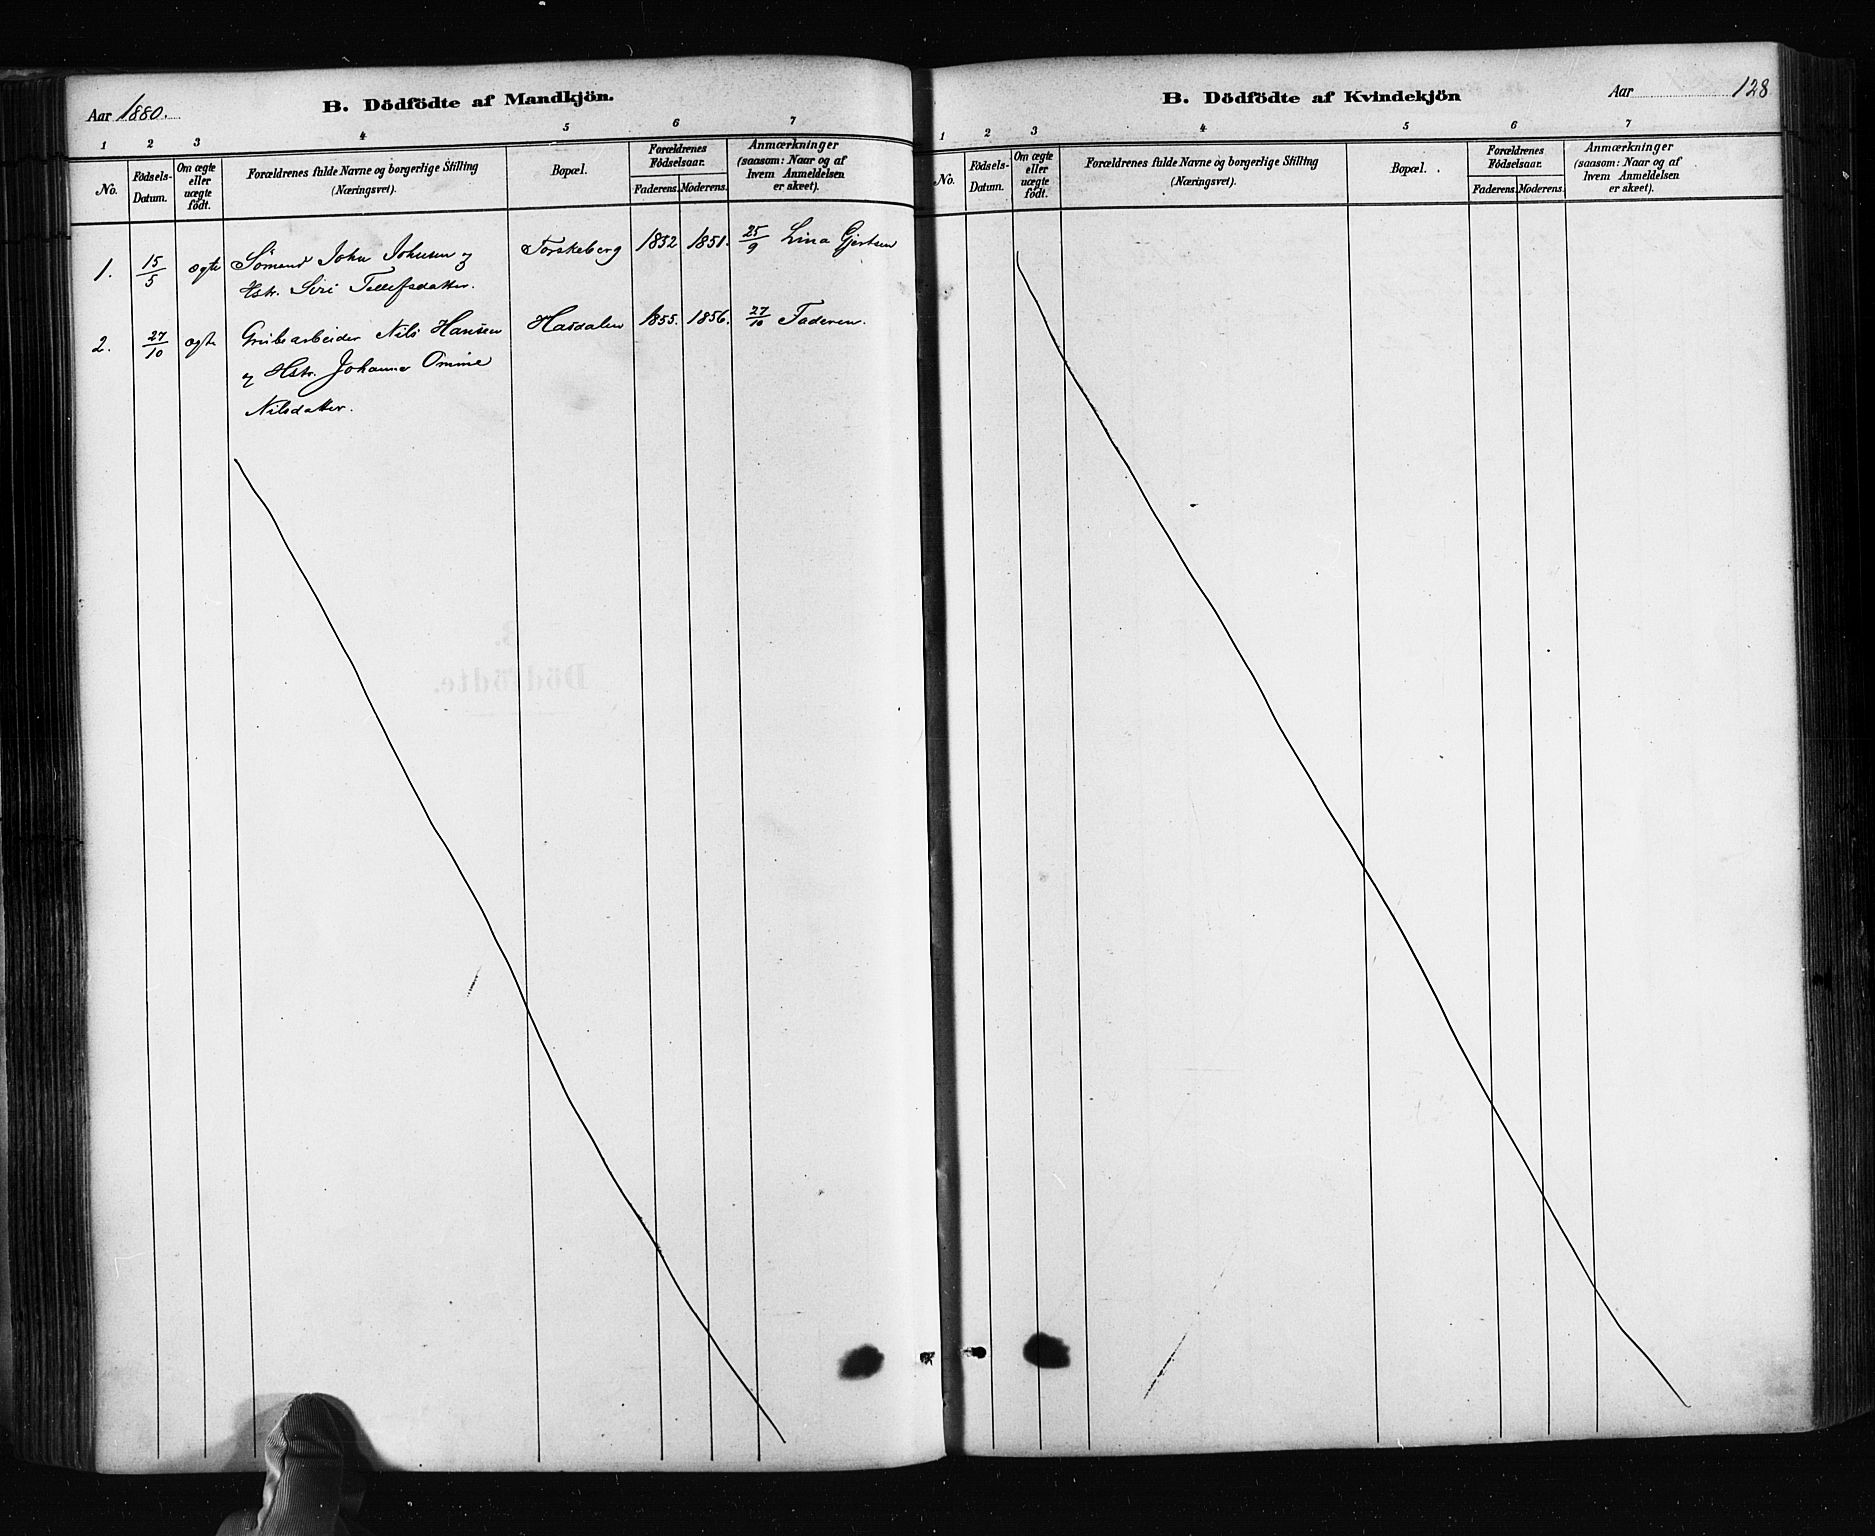 Aar 1880.
B. Dödfödte af Mandkjön.
1 2 3 4 5 6 7
No.
Födsels-
Datum.
Om ægte
eller
uægte
födt.
Forældrenes fulde Navne og borgerlige Stilling
(Næringsvei).
Bopæl.
Forældrenes
Födselsaar.
Faderens. Moderens.
Anmærkninger
(saasom: Naar og af
hvem Anmeldelsen
er skeet).
1. 15/5 ægte Sömand John Johnsen og Torskeberg 1852 1851. 25/9 Lina Gjertsen
Hstr. Siri Tellefsdatter.
2. 27/10 ægte Grubearbeider Nils Hansen Hasdalen 1855. 1856. 27/10 Faderen.
og Hstr. Johanne Omine
Nilsdatter.
B. Dödfödte af Kvindekjön
Aar 128
1 2 3 4 5 6 7
No.
Födsels-
Datum.
Om ægte
eller
uægte
födt.
Forældrenes fulde Navne og borgerlige Stilling
(Næringsvei).
Bopæl.
Forældrenes
Födselsaar.
Faderens. Moderens.
Anmærkninger
(saasom: Naar og af
hvem Anmeldelsen
er skeet).
Dödfödte.